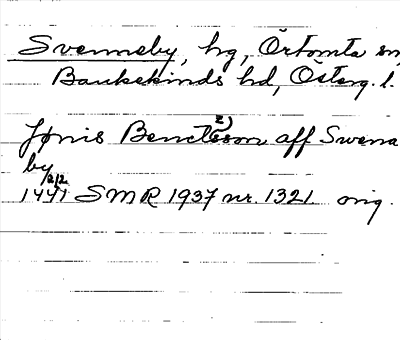 Svenneby, hg, Örtomta sn,
Bankekinds hd, Österg. l.
Jønis Benctsson 2) aff Swena
by
1441 2/2 SMR 1937 nr. 1321 orig.